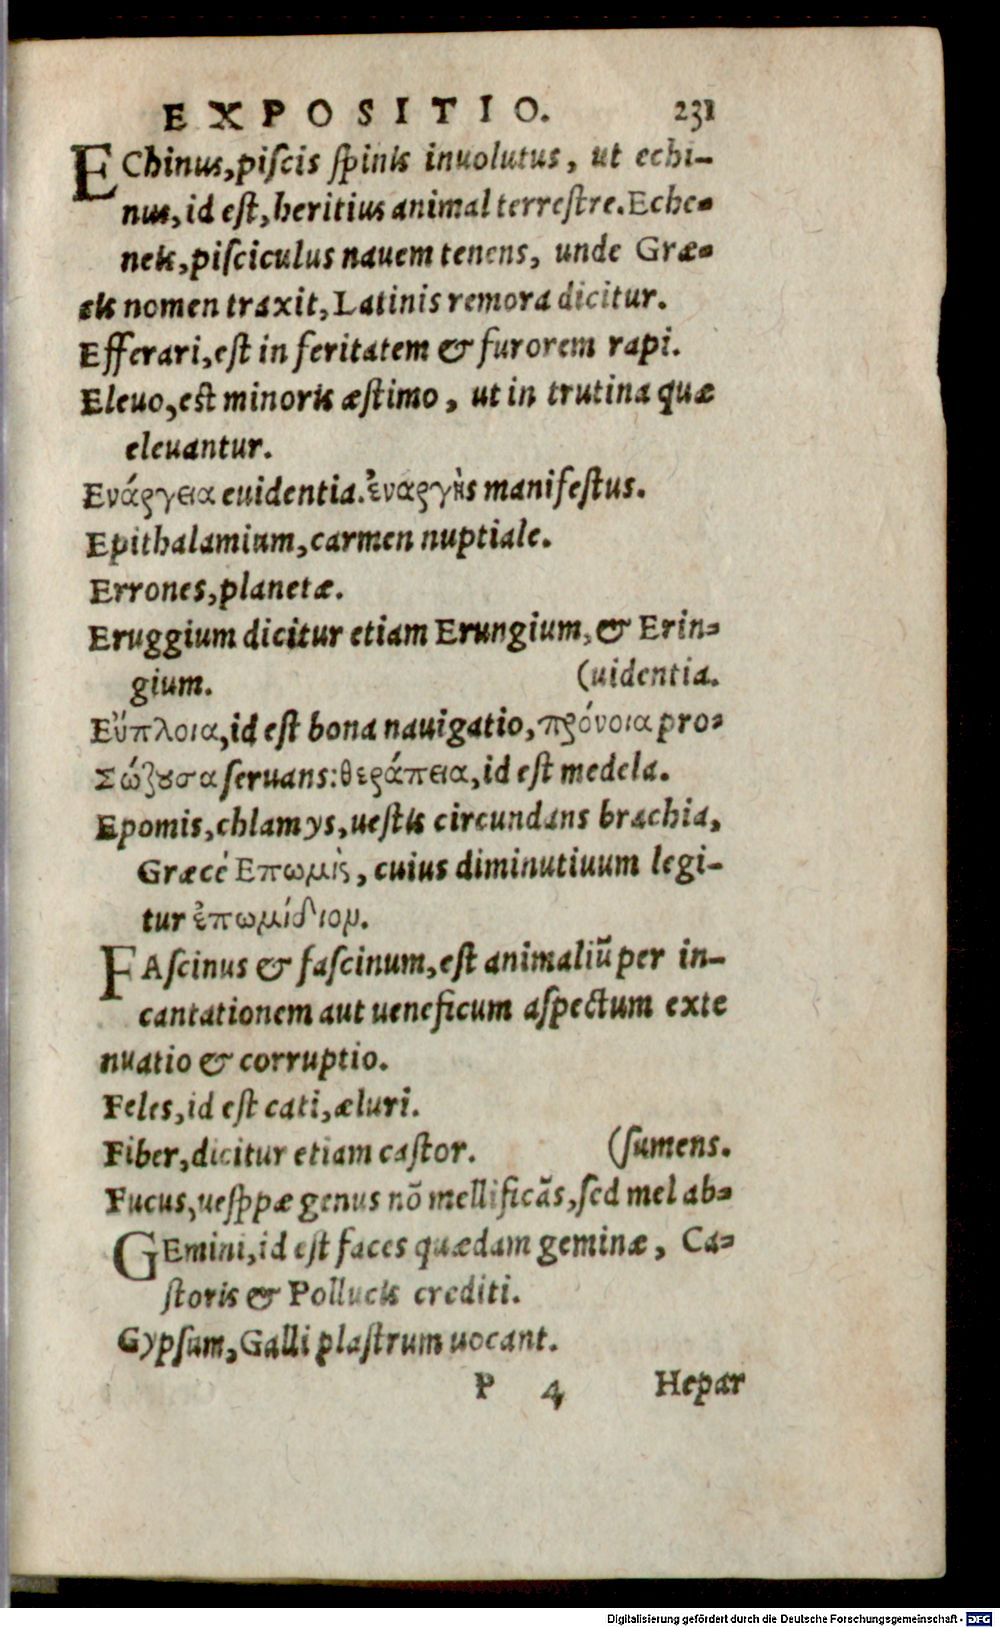 EXPOSITIO. 231
EChinus, piſcis ſpinis inuolutus, ut echi-
nus, id eſt, heritius animal terreſtre. Eche-
neis, piſciculus nauem tenens, unde Græ-
cis nomen traxit, Latinis remora dicitur.
Efferari, eſt in feritatem & furorem rapi.
Eleuo, est minoris æſtimo, ut in trutina quæ
eleuantur.
Ενάργεια euidentia. ἐναργὴς manifeſtus.
Epithalamium, carmen nuptiale.
Errones, planetæ.
Eruggium dicitur etiam Erungium, & Erin-
gium. (uidentia.
Εὔπλοια, id eſt bona nauigatio, πρόνοια pro-
Σώζȣσα ſeruans: θεράπεια, id eſt medela.
Epomis, chlamys, ueſtis circundans brachia,
Græcé Επωμὶς, cuius diminutiuum legi-
tur ἐπωμίδιον.
FAſcinus & faſcinum, eſt animaliũ per in-
cantationem aut ueneficum aſpectum exte
nuatio & corruptio.
Feles, id eſt cati, æluri.
Fiber, dicitur etiam caſtor. (ſumens.
Fucus, ueſppæ genus nō mellificãs, ſed mel ab-
GEmini, id eſt faces quædam geminæ, Ca-
ſtoris & Pollucis crediti.
Gypſum, Galli plaſtrum uocant.
P 4 Hepar
Digitalisierung gefördert durch die Deutsche Forschungsgemeinschaft - DFG